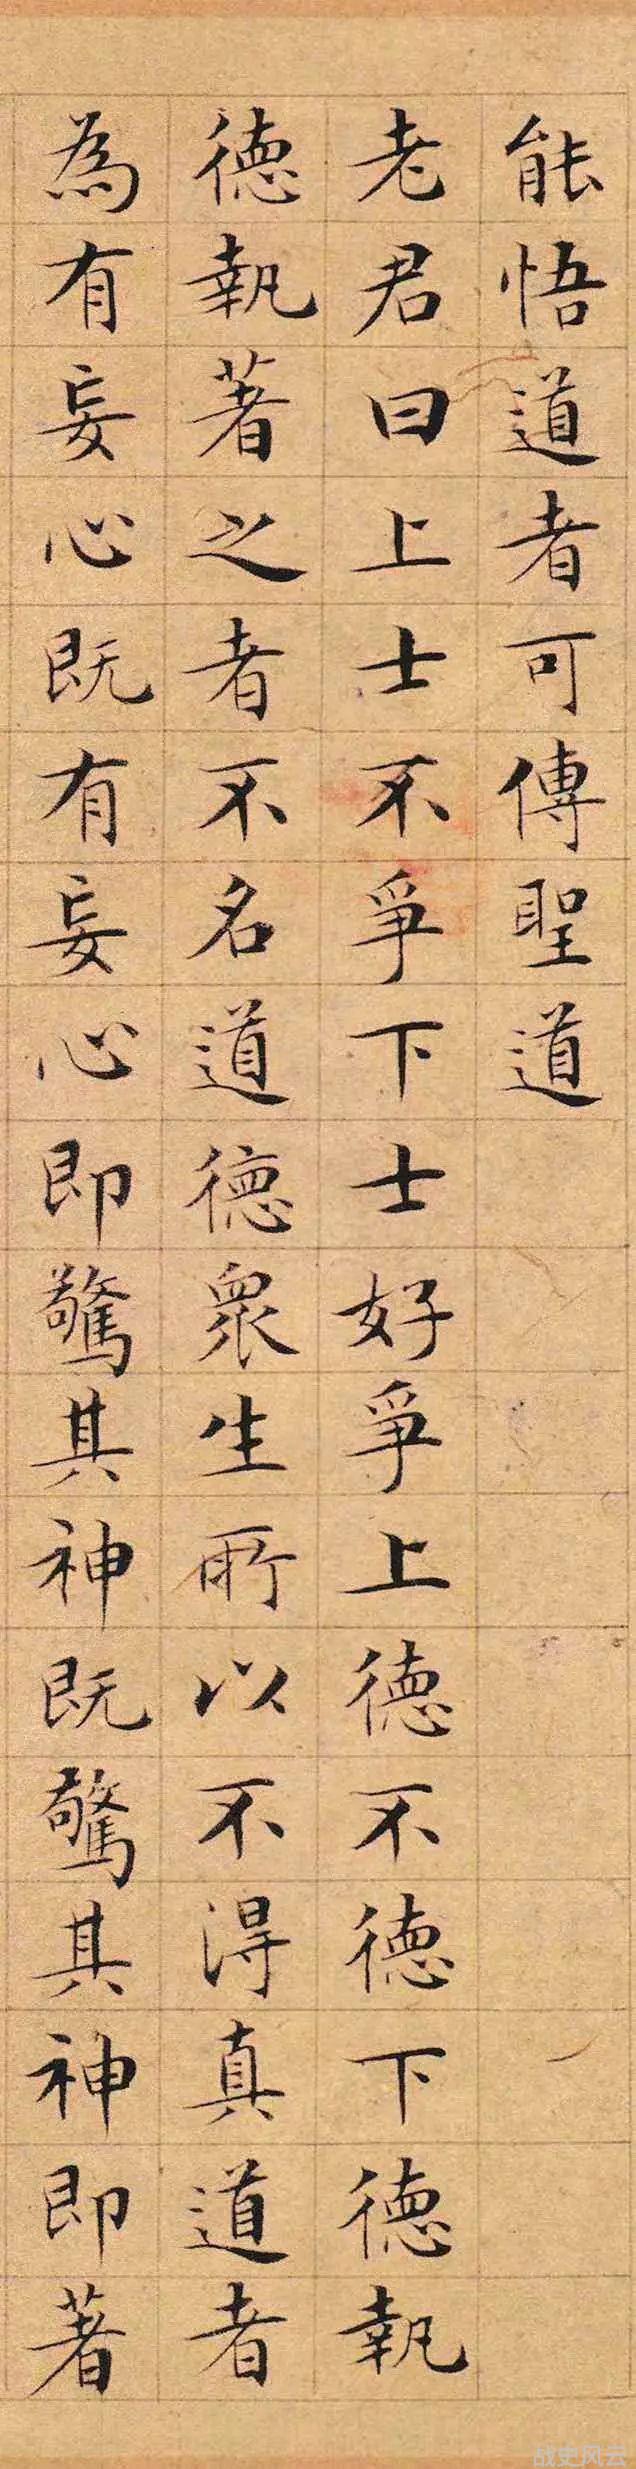 能悟道者可傳聖道
老君曰上士不爭下士好爭上德不德下德執
德執著之者不名道德衆生所以不得真道者
為有妄心既有妄心即驚其神既驚其神即著
战史风云